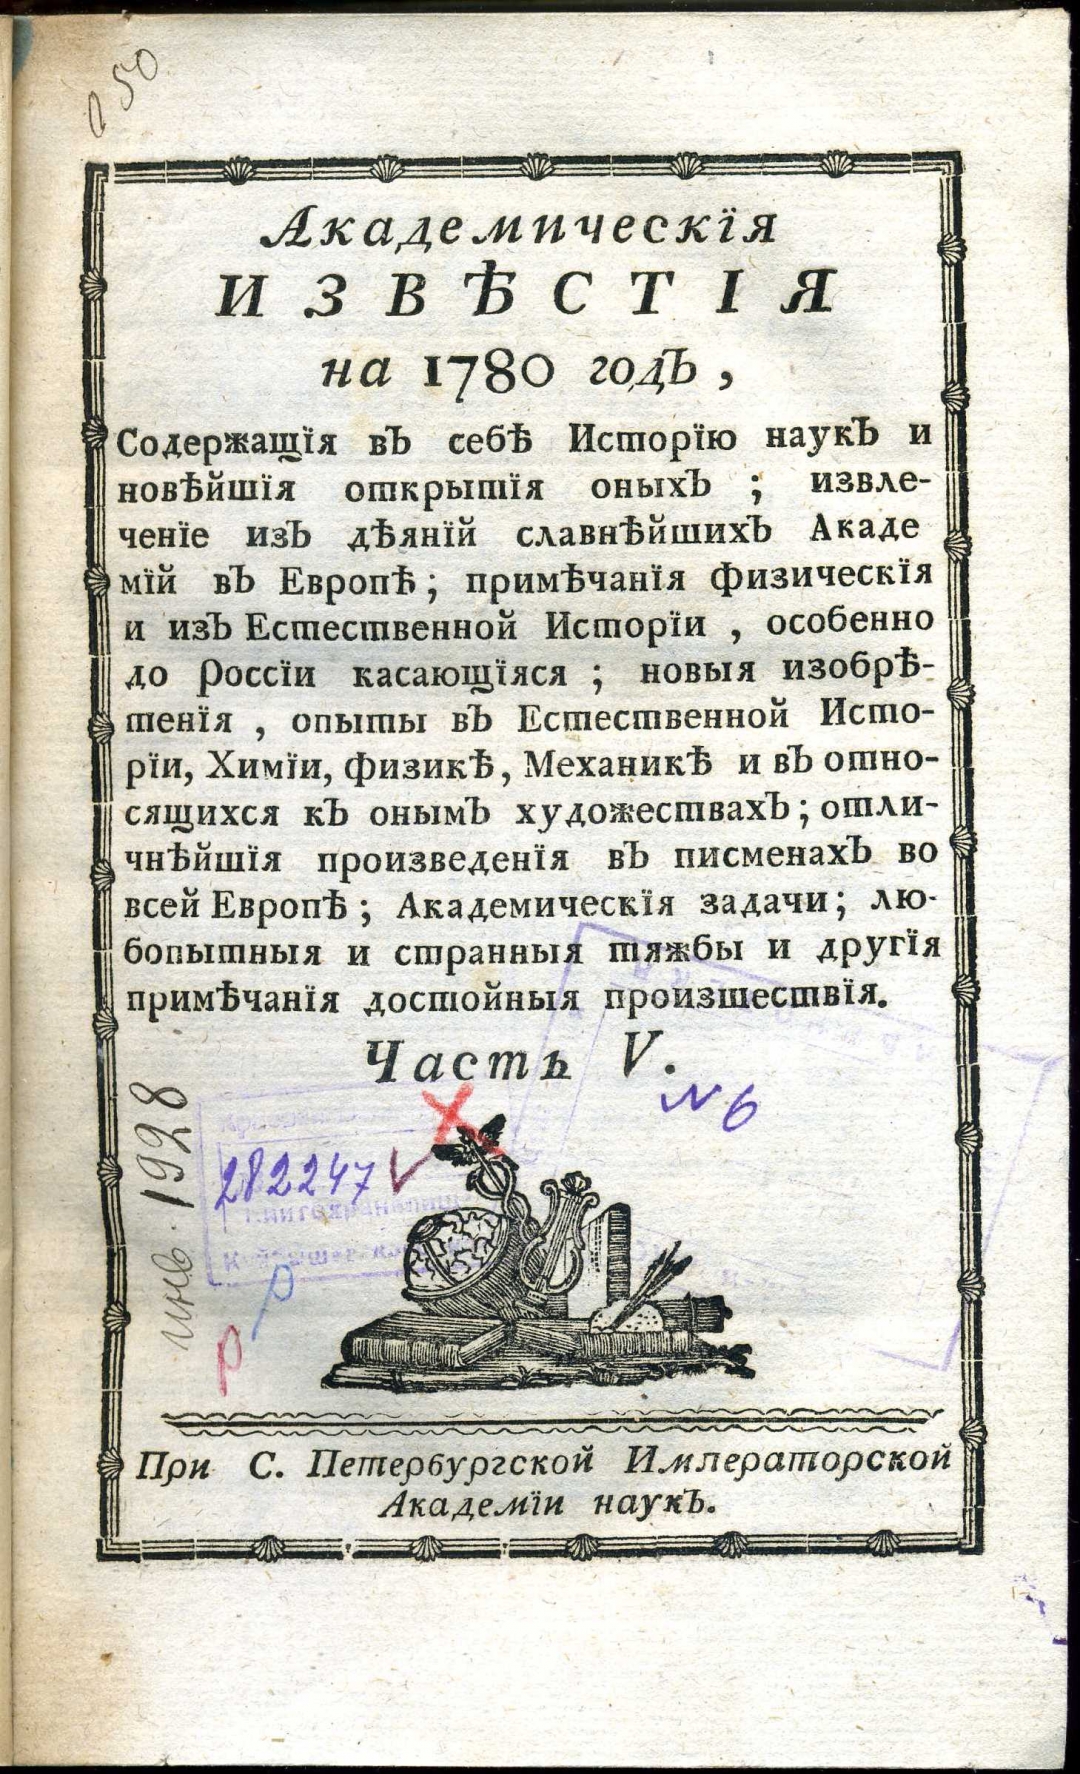 050
Академическїя
ИЗВѢСТІЯ
на 1780 годъ,
Содержащїя въ себѣ Исторїю наукъ и
новѣйшїя открытїя оныхъ ; извле-
ченїе изъ дѣянїй славнѣйшихъ Акаде
мїй въ Европѣ ; примѣчанїя физическїя
и изъ Естественной Исторїи , особенно
до Россїи касающїяся ; новыя изобрѣ-
тенїя , опыты въ Естественной Исто-
рїи, Химїи, физикѣ, Механикѣ и въ отно-
сящихся къ онымъ художествахъ ; отли-
чнѣйшїя произведенїя въ писменахъ во
всей Европѣ ; Академическїя задачи ; лю-
бопытныя и странныя тяжбы и другїя
примѣчанїя достойныя произшествїя.
Часть V.
N 6
282247
инв. 1928
р
р
При С. Петербургской Императорской
Академїи наукъ.